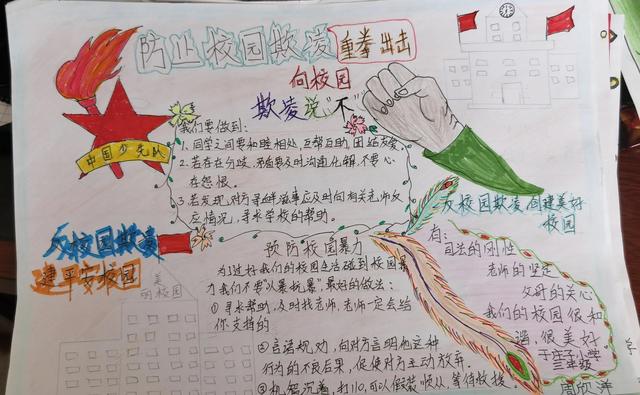 防止校园欺凌 重拳出击
向校园
欺凌说"不"
中国少先队
我们要做到:
1.同学之间要和睦相处,互帮互助,团结友爱.
2.若存在分歧,需要及时沟通化解,不要心
存怨恨.
3.若发现对方寻衅滋事应及时向相关老师反
应情况,寻求学校的帮助.
反校园欺凌
建平安校园
美
的校园
反校园欺凌 创建美好
校园
预防校园暴力
为了过好我们的校园生活碰到校园暴
力我们不要"以暴抗暴"最好的做法:
①寻求帮助,及时找老师,老师一定会给
你支持的
②言语规劝,向对方言明他这种
行为的不良后果,促使对方主动放弃.
③机智沉着,打110,可以假装顺从,等待救援.
有:
司法的刚性
老师的坚定
父母的关心
我们的校园很和
谐,很美好
于庄子小学
三年级
周欣洋